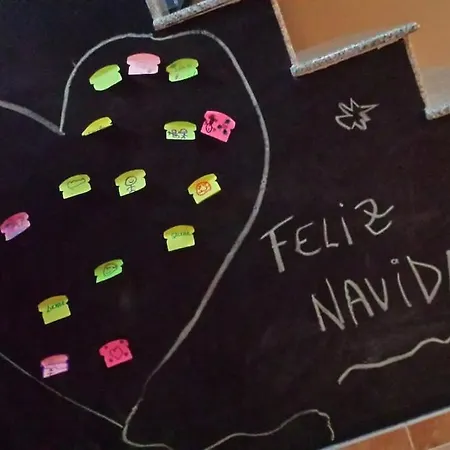 FELIZ
NAVID